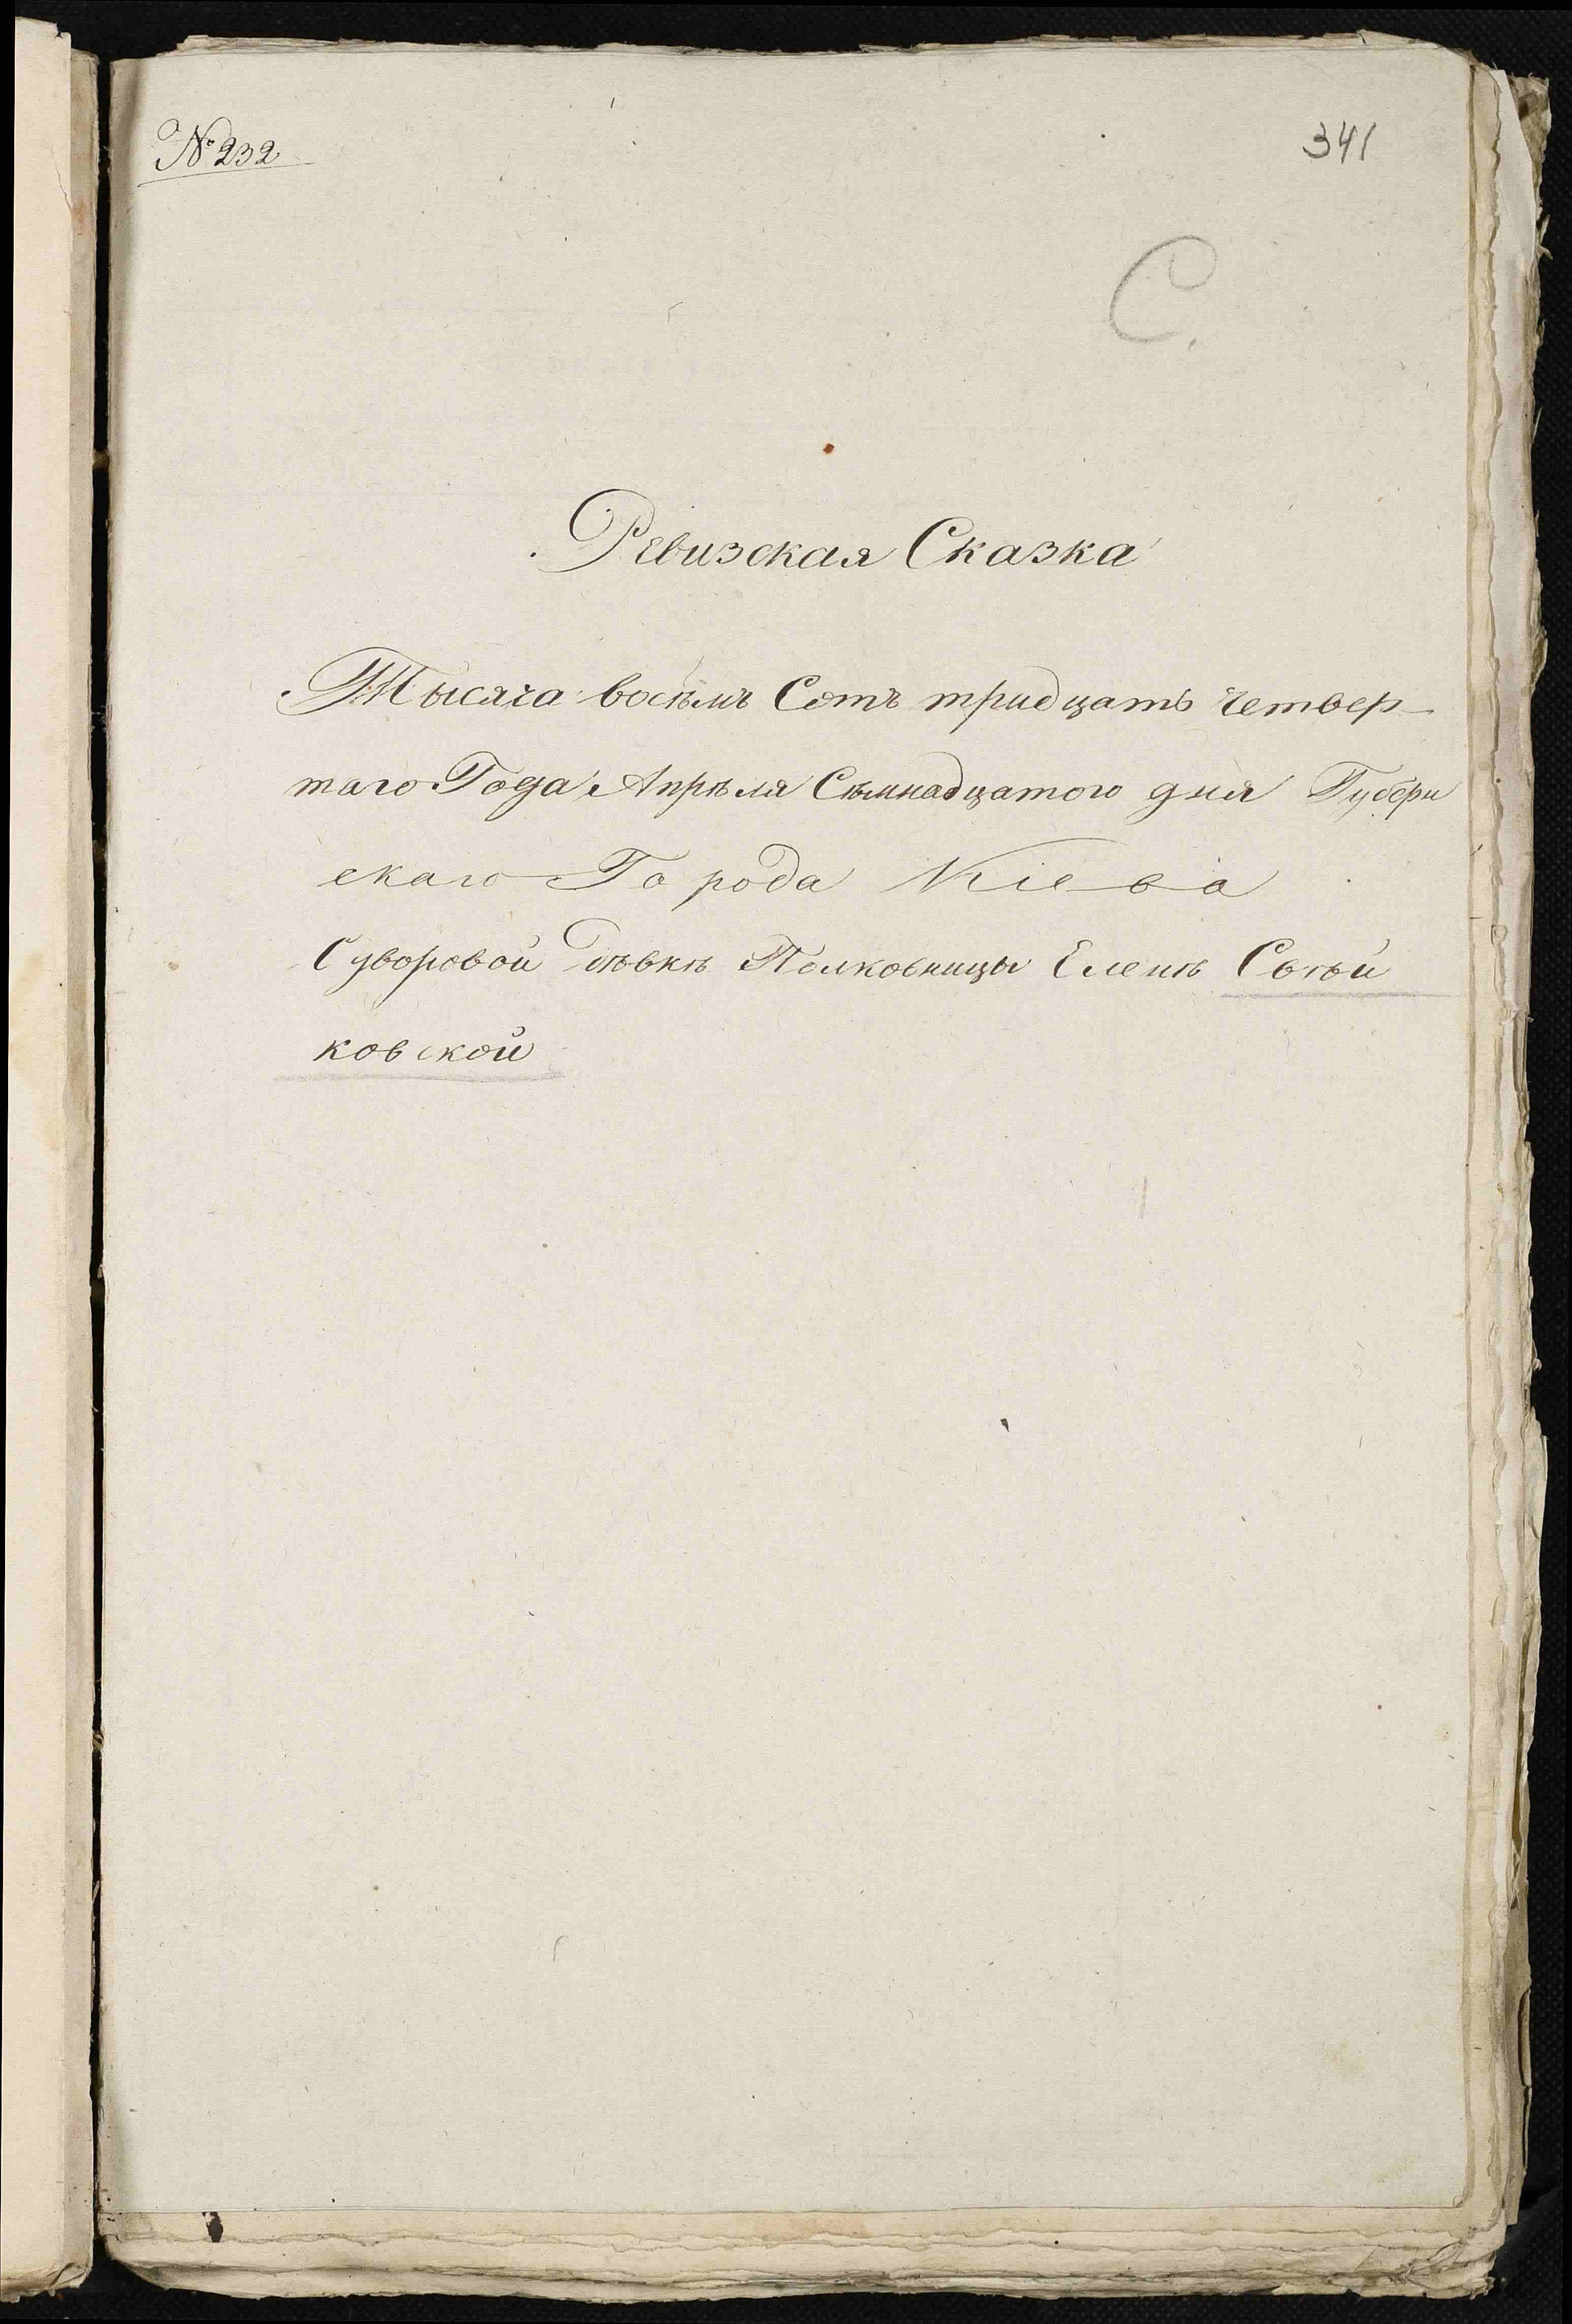 № 232
341
С.
Ревизская Сказка
Тысяча восѣмъ Сотъ тридцать четвер-
таго Года Апрѣля Сѣмнадцатого дня Губерн
скаго Города Кіева
дѣвкѣ Полковницы Еленѣ Свѣй
ковской